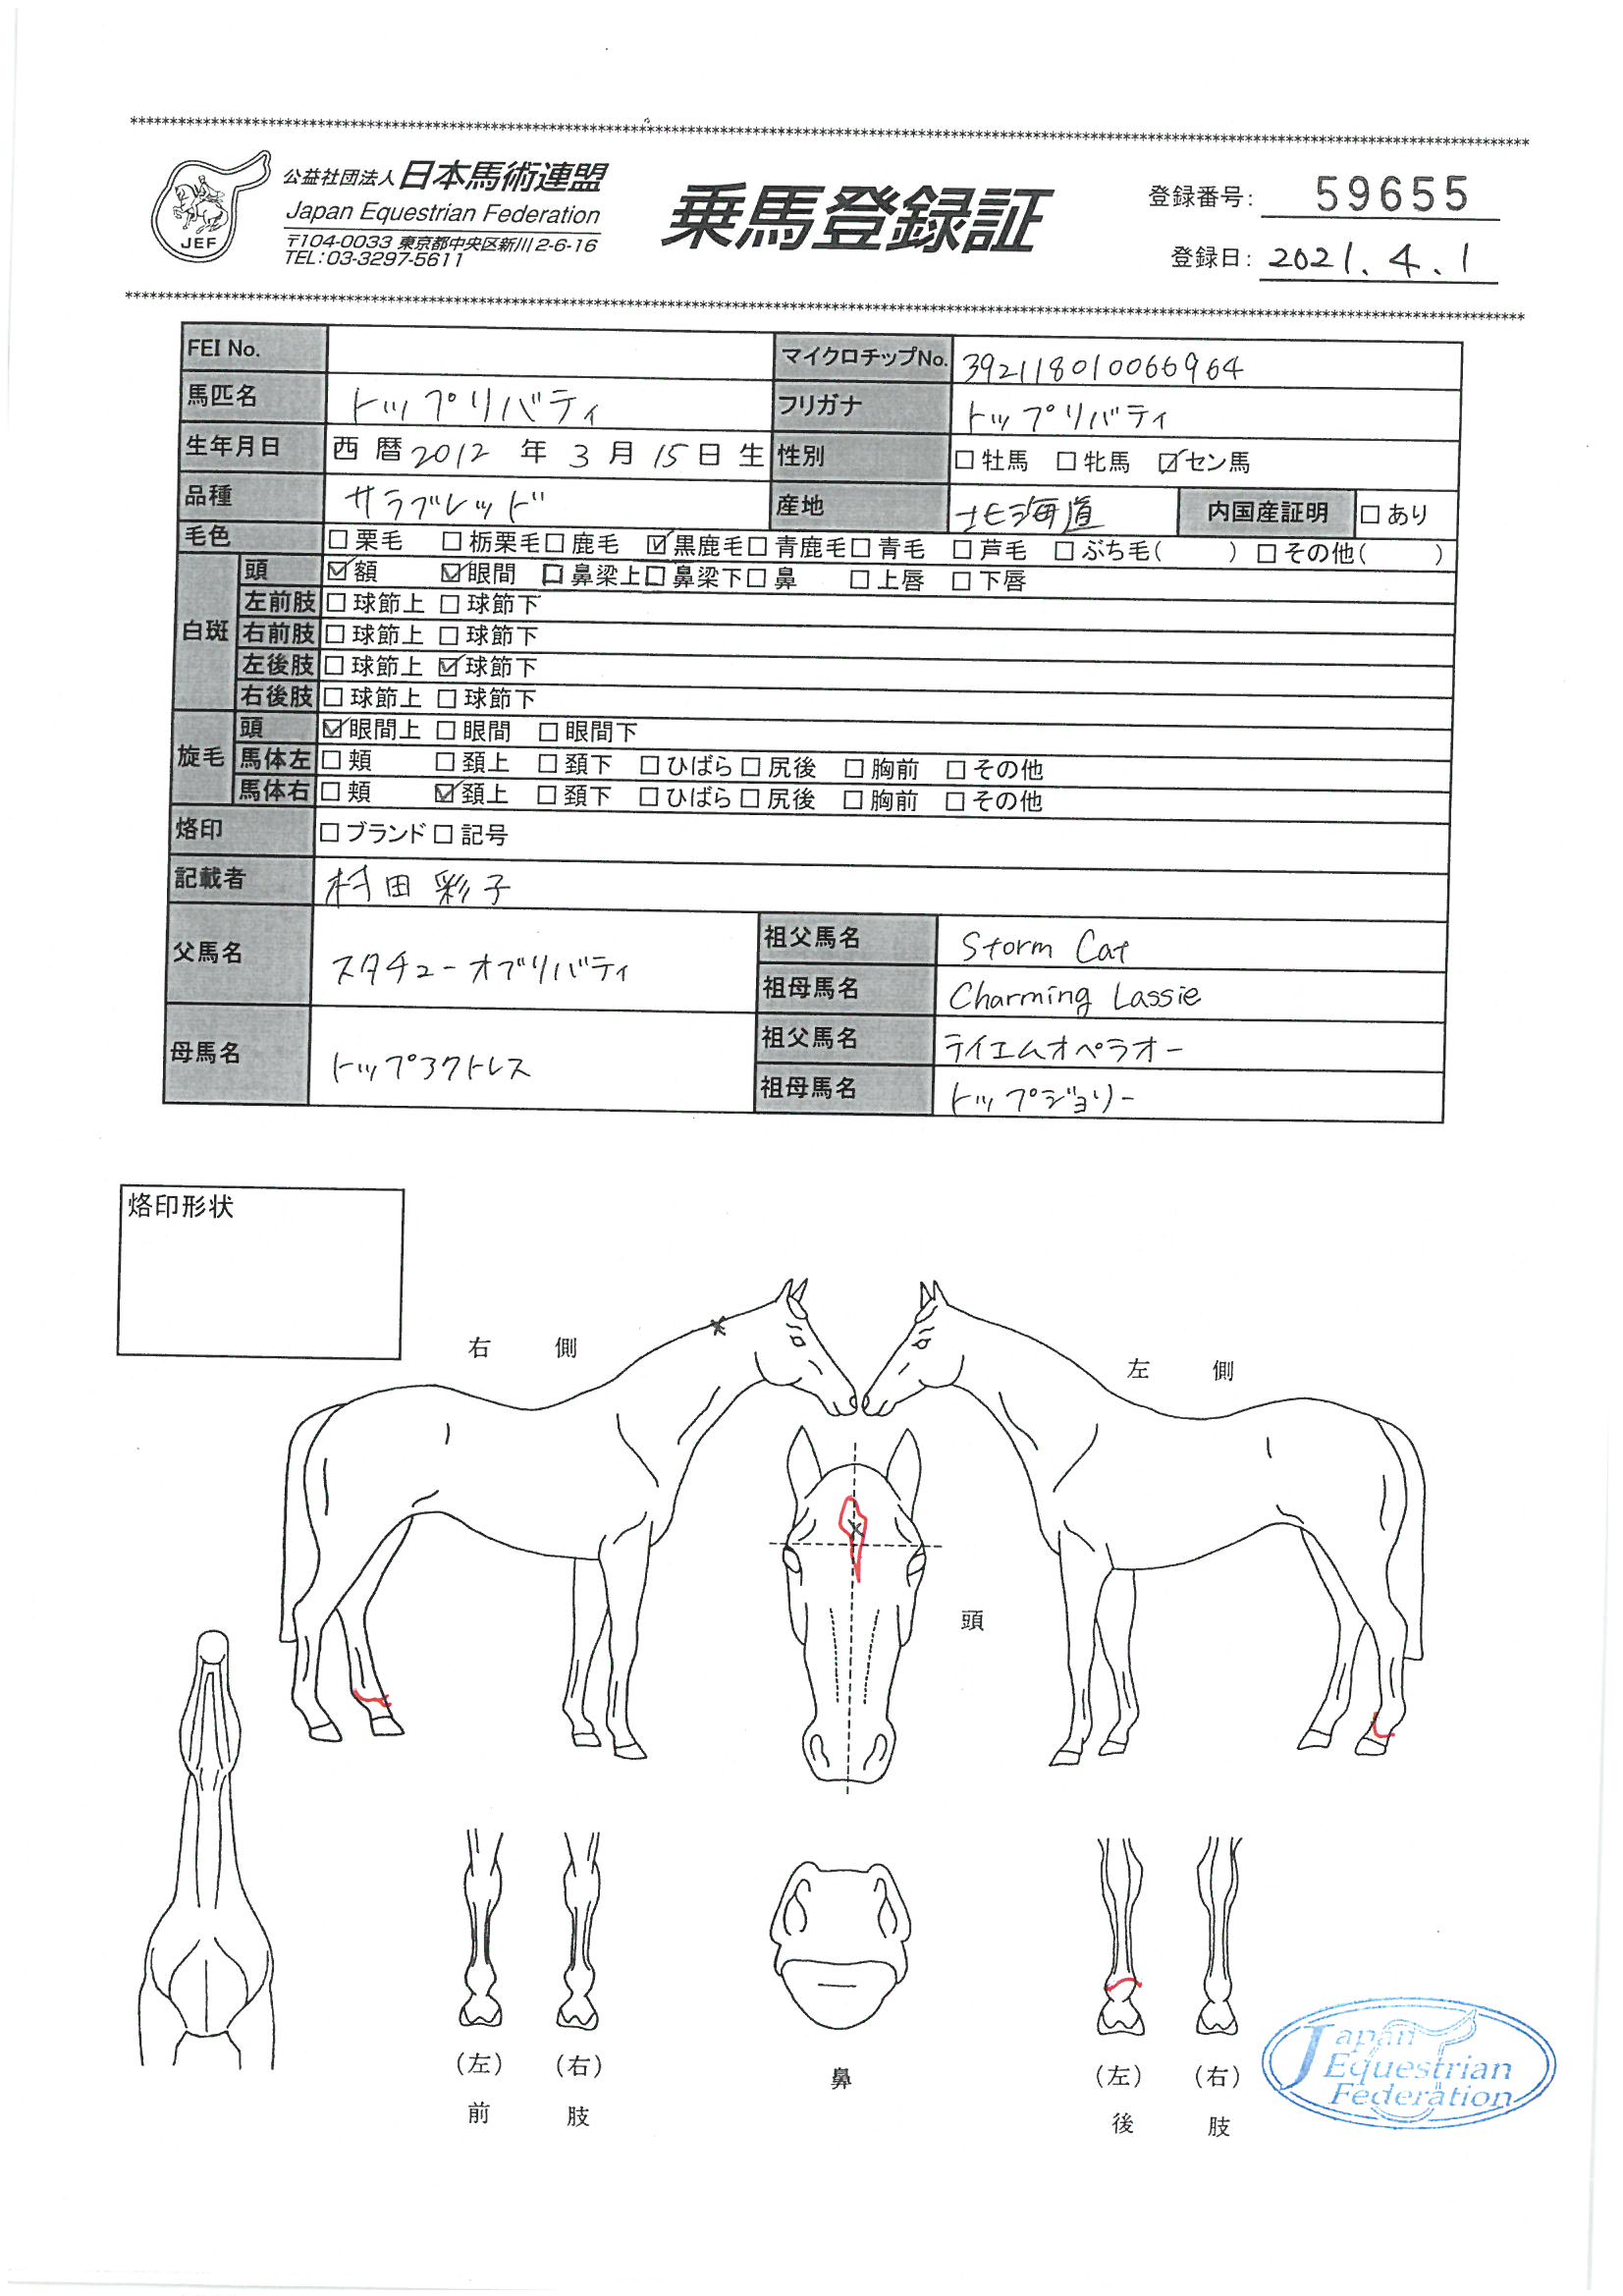 公益社団法人 日本馬術連盟
Japan Equestrian Federation
〒104-0033 東京都中央区新川2-6-16
TEL:03-3297-5611
JEF
乗馬登録証
登録番号: 59655
登録日: 2021.4.1
FEI No. マイクロチップNo. 392118010066964
馬匹名 トップリバティ フリガナ トップリバティ
生年月日 西暦2012年3月15日生 性別 □牡馬 □牝馬 ☑セン馬
品種 サラブレッド 産地 北海道 内国産証明 □あり
毛色 □栗毛 □栃栗毛 □鹿毛 ☑黒鹿毛 □青鹿毛 □青毛 □芦毛 □ぶち毛( ) □その他( )
白斑 頭 ☑額 ☑眼間 □鼻梁上 □鼻梁下 □鼻 □上唇 □下唇
左前肢 □球節上 □球節下
右前肢 □球節上 □球節下
左後肢 □球節上 ☑球節下
右後肢 □球節上 □球節下
旋毛 頭 ☑眼間上 □眼間 □眼間下
馬体左 □頬 □頚上 □頚下 □ひばら □尻後 □胸前 □その他
馬体右 □頬 ☑頚上 □頚下 □ひばら □尻後 □胸前 □その他
烙印 □ブランド □記号
記載者 村田彩子
父馬名 スタチューオブリバティ 祖父馬名 Storm Cat
祖母馬名 Charming Lassie
母馬名 トップアクトレス 祖父馬名 テイエムオペラオー
祖母馬名 トップジョリー
烙印形状
右側
左側
頭
(左) (右)
前 肢
鼻
(左) (右)
後 肢
Japan
Equestrian
Federation